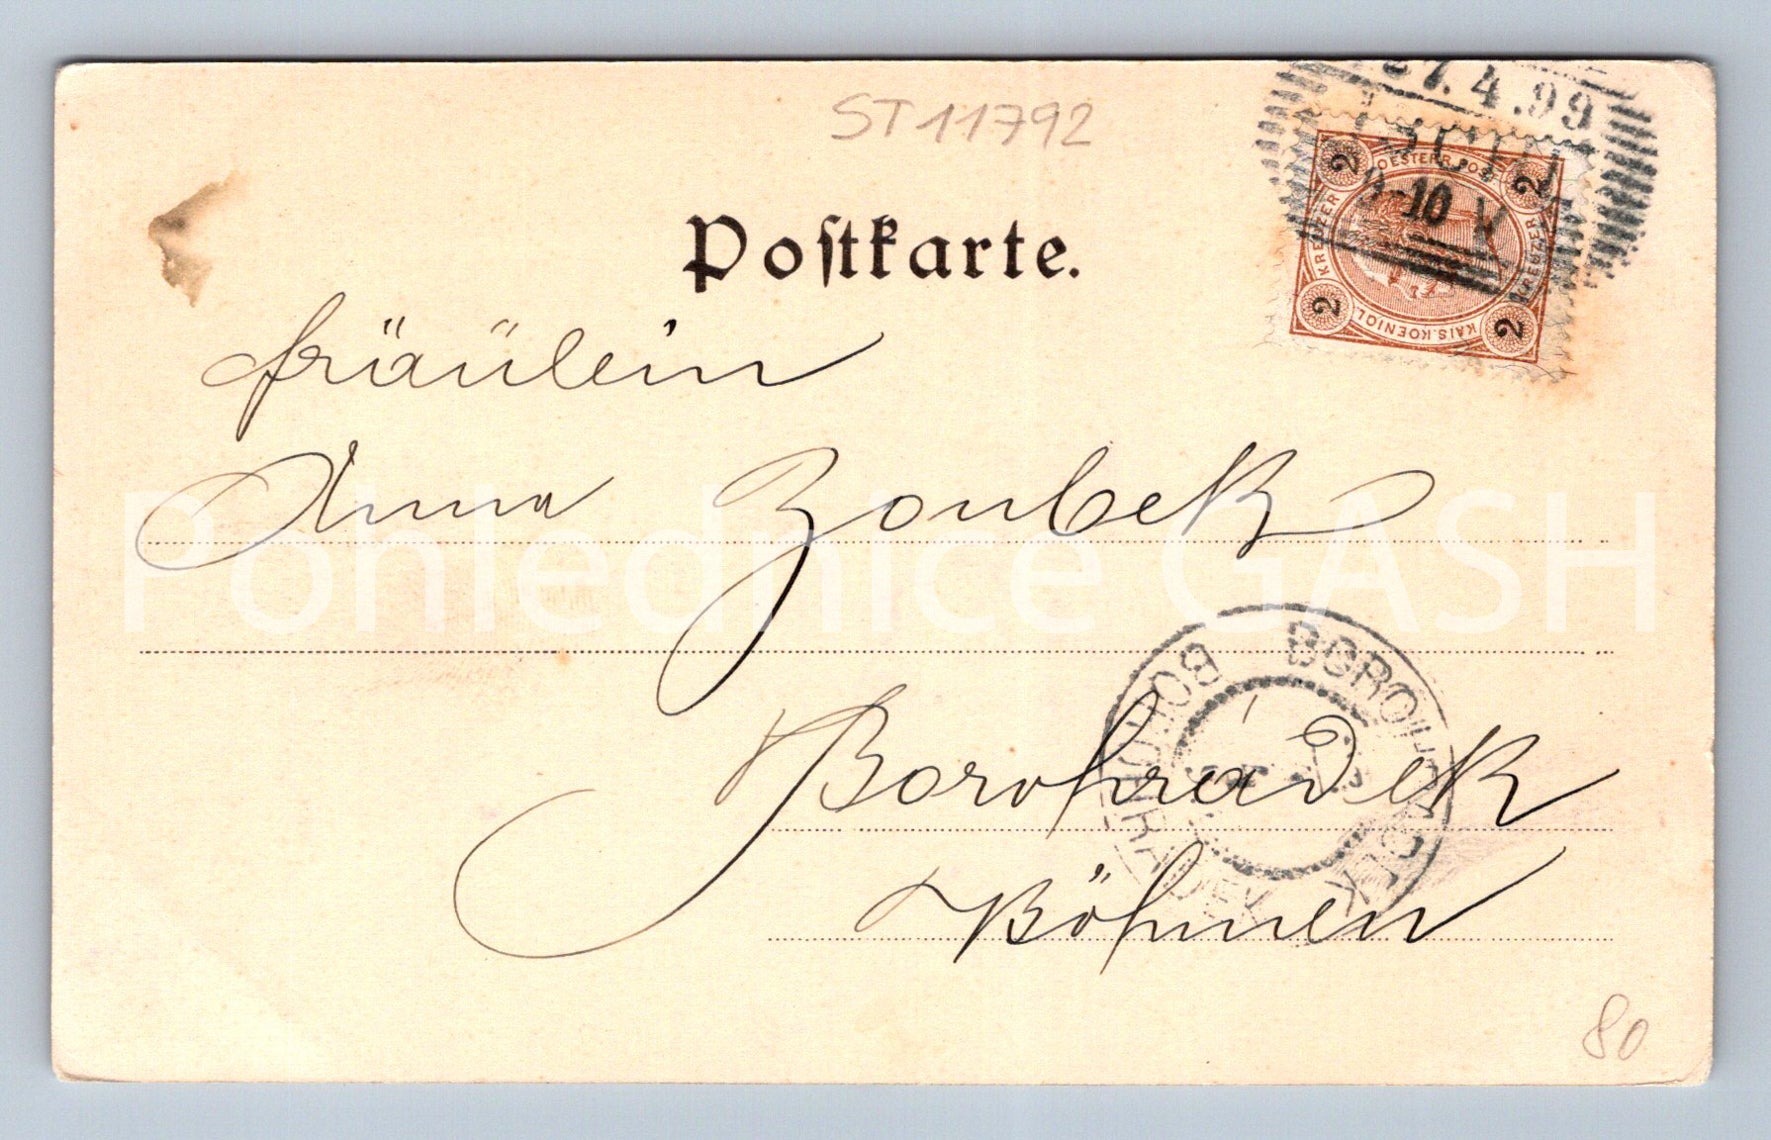 ST11792
27.4.99
ISCHL
9-10 V
OESTERR. POST
KREUZER
KREUZER
KAIS. KOENIGL.
2
2
2
2
Postkarte.
fräülein
Anna Zoubek
Pohlednice GASH
BOROHRADEK
BOROHRADEK
Borohrádek
Böhmen
80